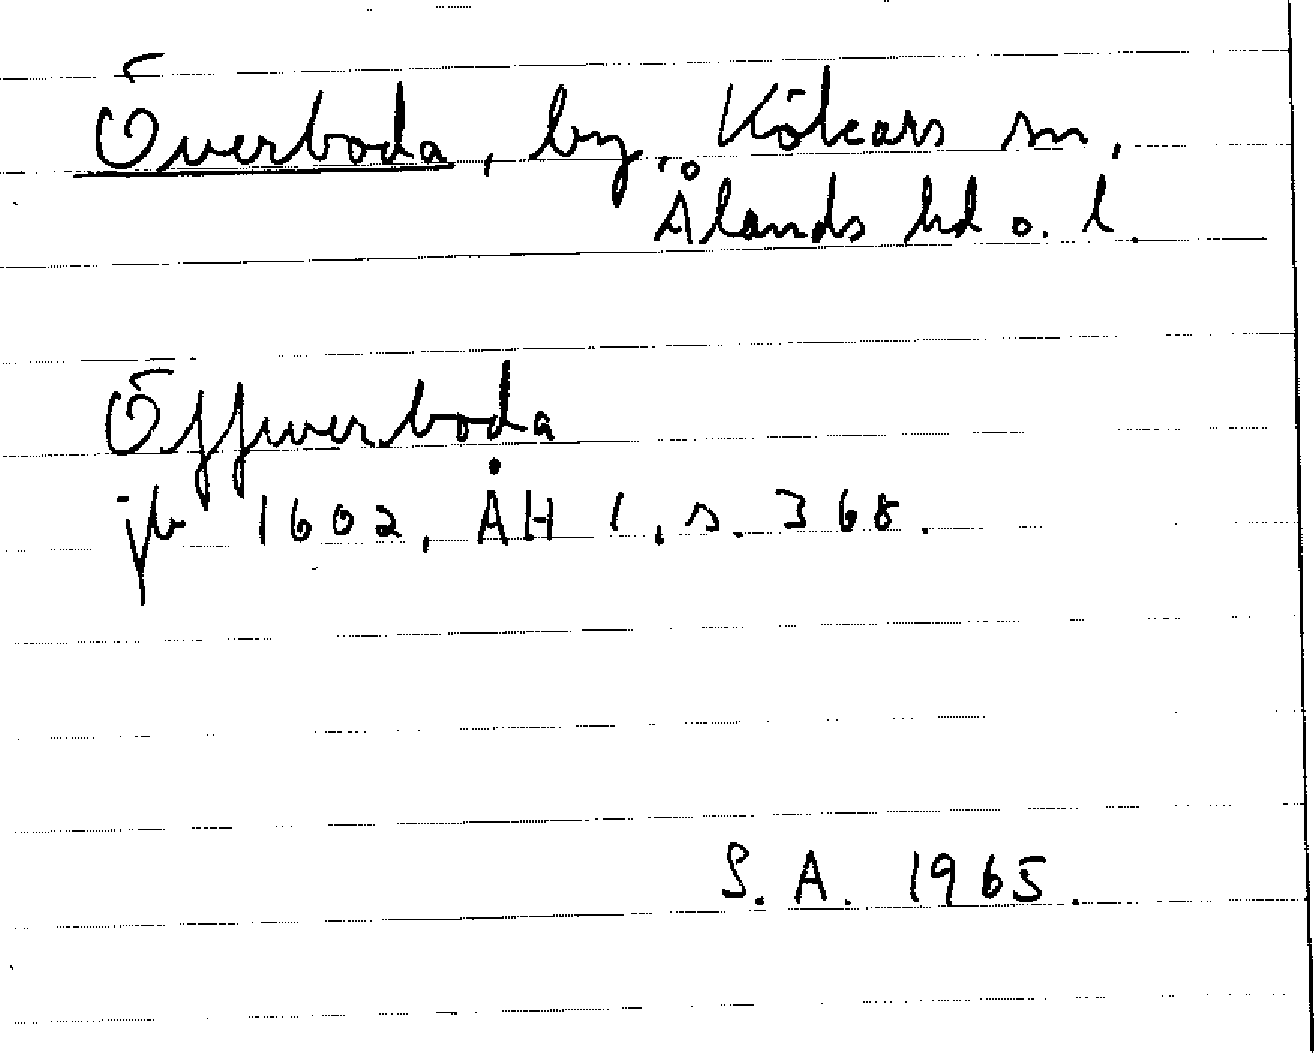 Överboda, by, Kökars sn,
Ålands hd o. l.
Öffwerboda
jb 1602, ÅH 1, s. 368.
S. A. 1965.